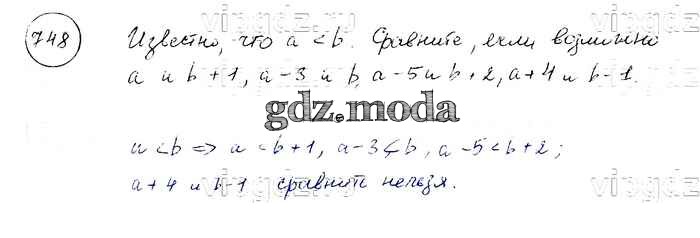 vipgdz vipgdz vipgdz
748 Известно, что a < b. Сравните, если возможно
a и b+1, a-3 и b, a-5 и b+2, a+4 и b-1.
gdz.moda
a < b => a < b+1, a-3 < b, a-5 < b+2;
a+4 и b-1 сравнить нельзя.
vipgdz vipgdz vipgdz